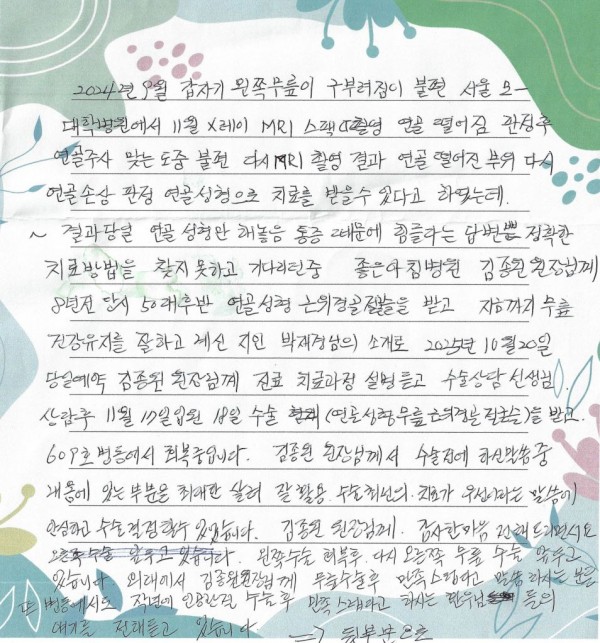 2024년 9월 갑자기 왼쪽무릎이 구부려짐이 불편 서울 모-
대학병원에서 11월 X레이 MRI 스펙CT촬영 연골 떨어짐 판정후
연골주사 맞는 도중 불편 다시 MRI 촬영 결과 연골 떨어진 부위 다시
연골손상 판정 연골성형으로 치료를 받을수 있다고 하였는데.
~ 결과당일 연골 성형만 해놓음 통증 때문에 힘들다는 답변뿐 정확한
치료방법을 찾지못하고 기다리던중 좋은아침병원 김종원원장님께
8년전 당시 50대후반 연골성형 근위경골절골술을 받고 지금까지 무릎
건강유지를 잘하고 계신 지인 박재경님의 소개로 2025년 10월 20일
당일예약 김종원 원장님께 진료 치료과정 설명듣고 수술상담 선생님.
상담후 11월 17일입원 18일 수술 (연골성형무릎근위경골절골술)을 받고.
609호병동에서 회복중입니다. 김종원 원장님께서 수술전에 하신말씀중
내몸에 있는 부분은 최대한 살려 잘 활용. 수술최선의 치료가 우선이라는 말씀이
안심하고 수술결정할수 있었습니다. 김종원 원장님께. 감사한마음 전해드리면서요
오른쪽수술 앞두고 있습니다. 왼쪽수술 회복후. 다시 오른쪽 무릎 수술 앞두고
있습니다 외래에서 김종원원장님께 무릎수술후 만족스럽다고 말씀 하시는 분들
또 병동에서도 작년에 인공관절 수술후 만족스럽다고 하시는 환우님들의
얘기를 전해듣고 있습니다 ⇒ 뒷부분으로